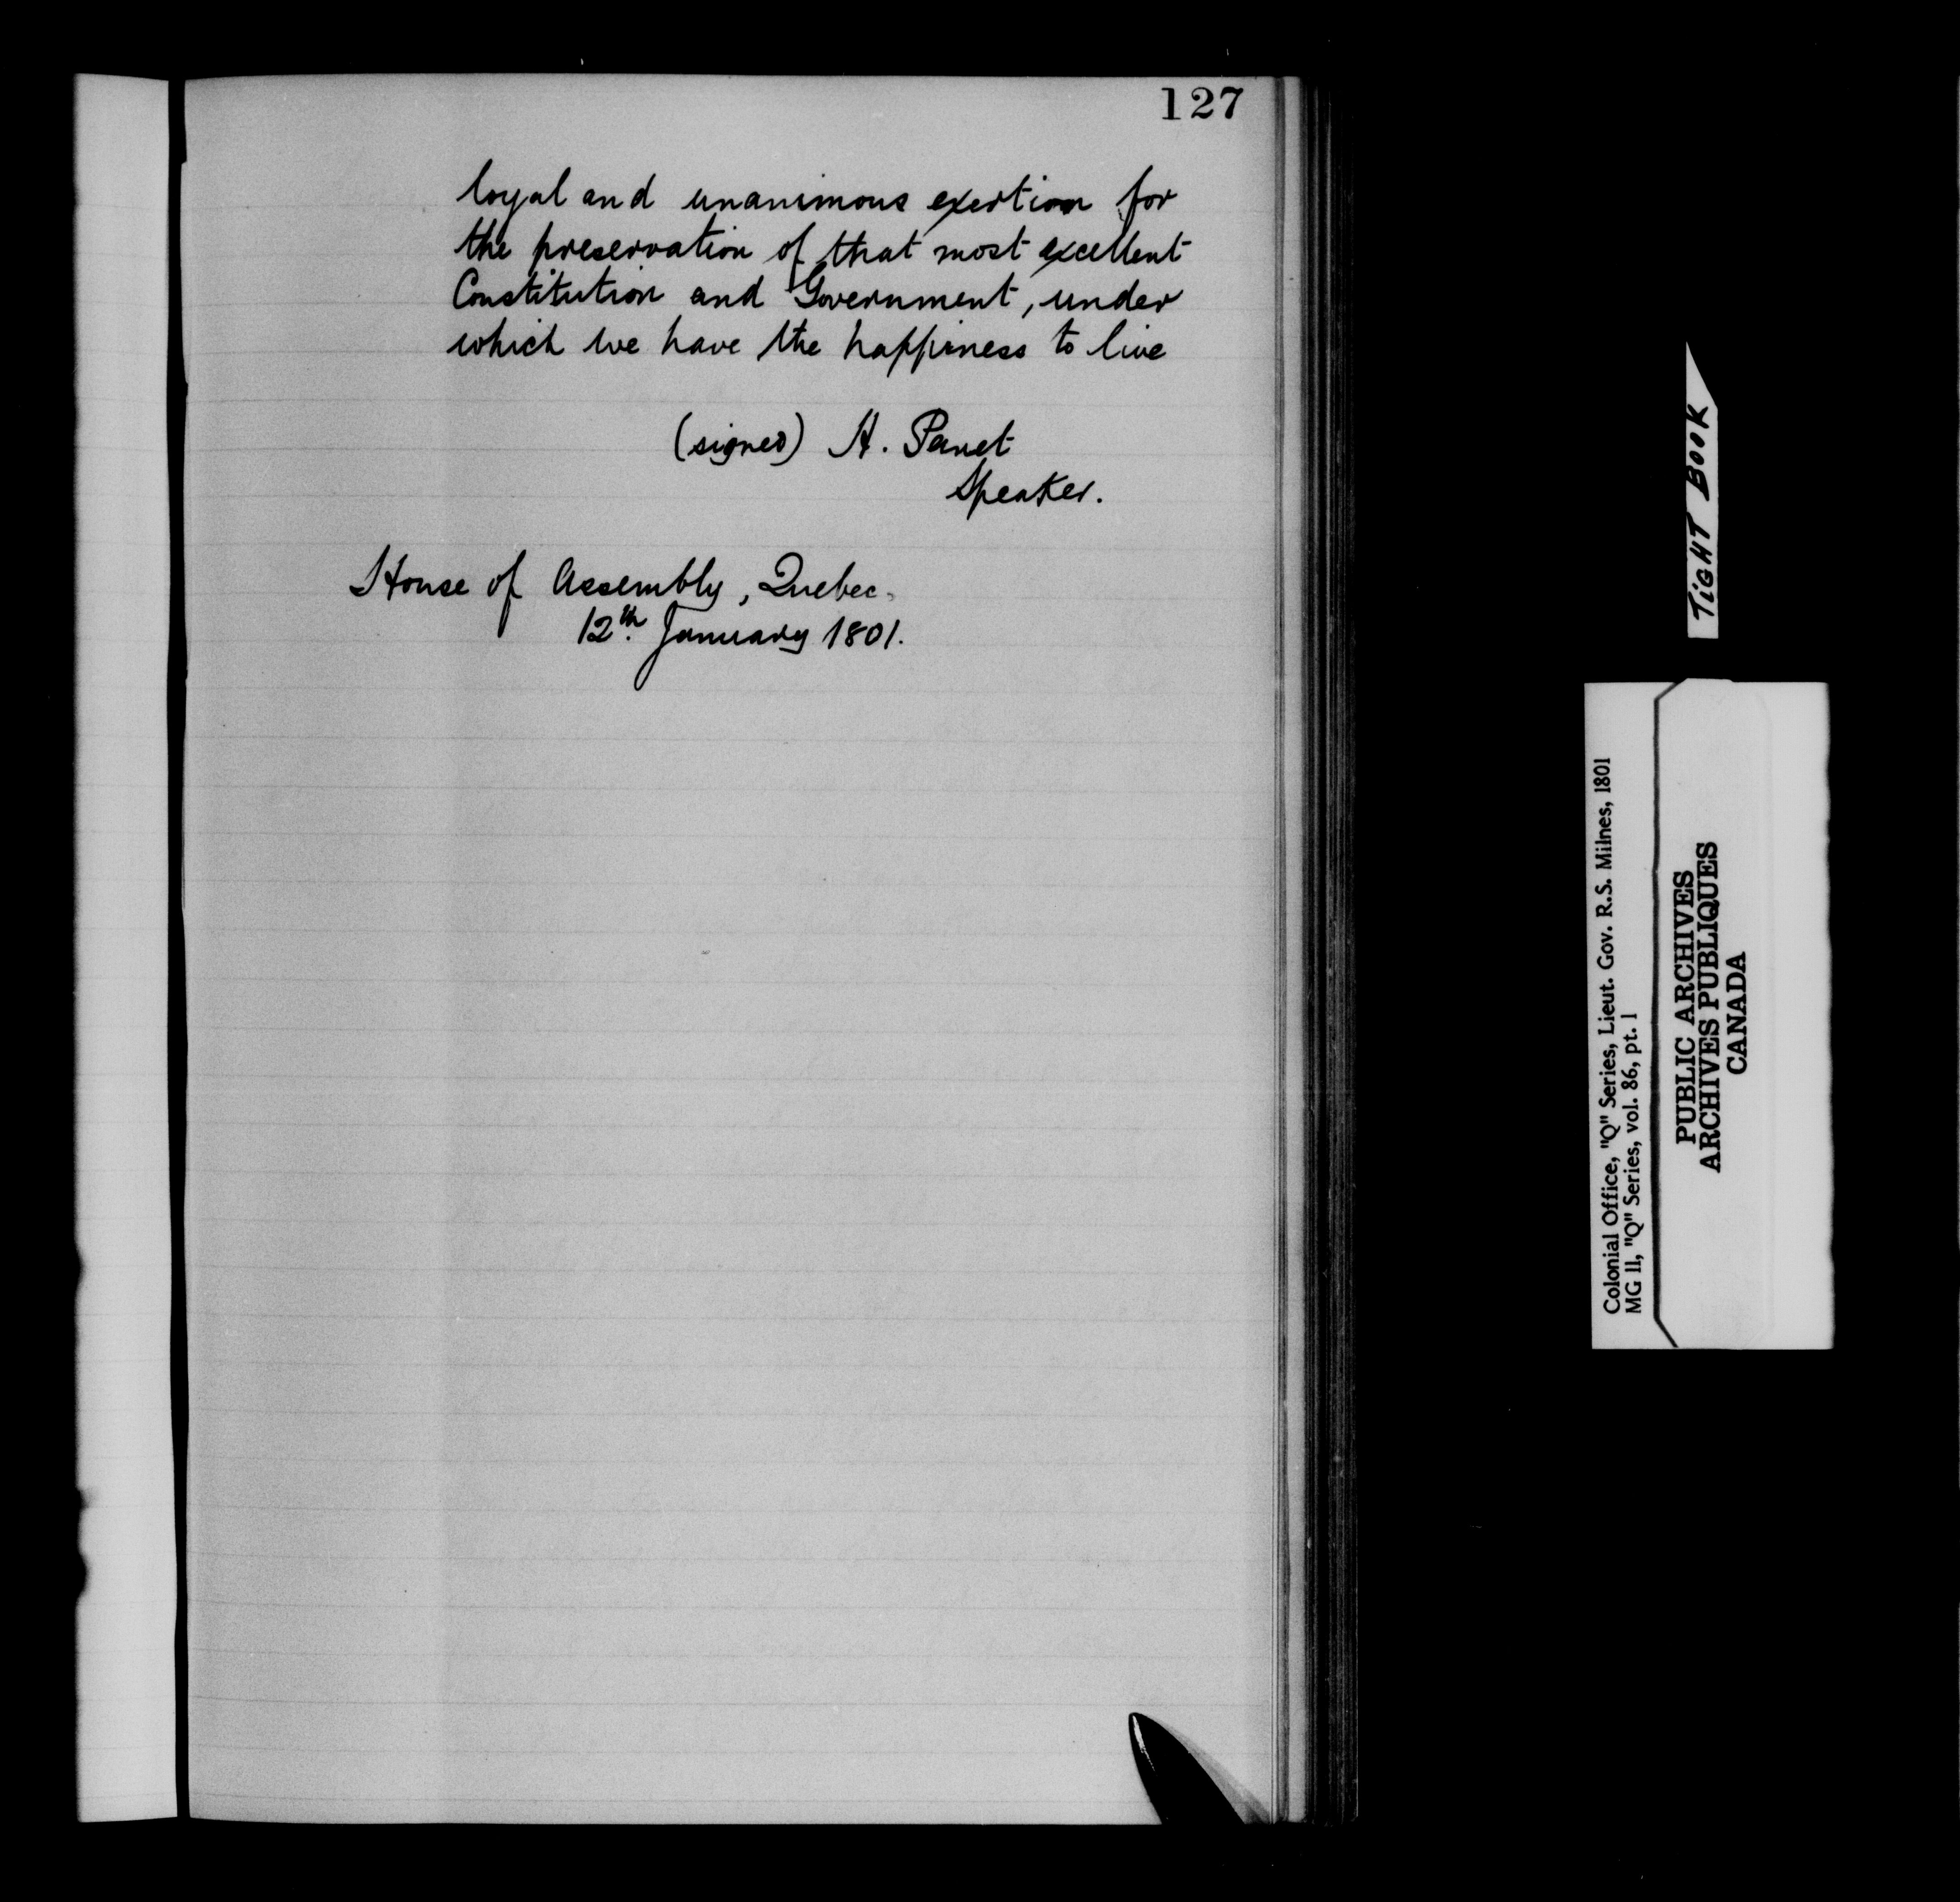 127
loyal and unanimous exertion for
the preservation of that most excellent
Constitution and Government, under
which we have the happiness to live
(signed) A. Panet
Speaker.
House of Assembly, Quebec.
12th. January 1801.
TIGHT BOOK
Colonial Office, "Q" Series, Lieut. Gov. R.S. Milnes, 1801
MG 11, "Q" Series, vol. 86, pt. 1
PUBLIC ARCHIVES
ARCHIVES PUBLIQUES
CANADA